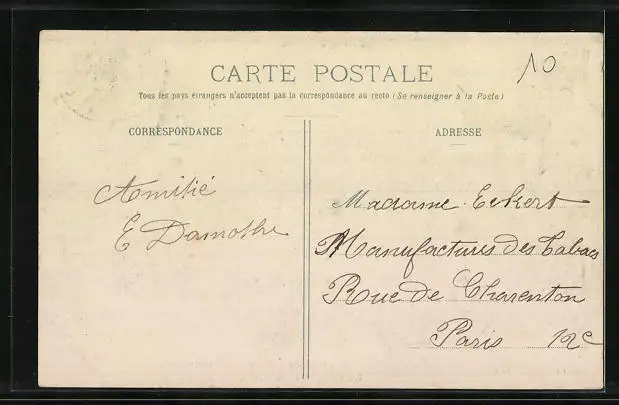 CARTE POSTALE
10
Tous les pays étrangers n'acceptent pas la correspondance au recto (Se renseigner à la Poste)
CORRESPONDANCE
Amitié
E Damothe
ADRESSE
Madame Eckert
Manufactures des Tabacs
Rue de Charenton
Paris 12e